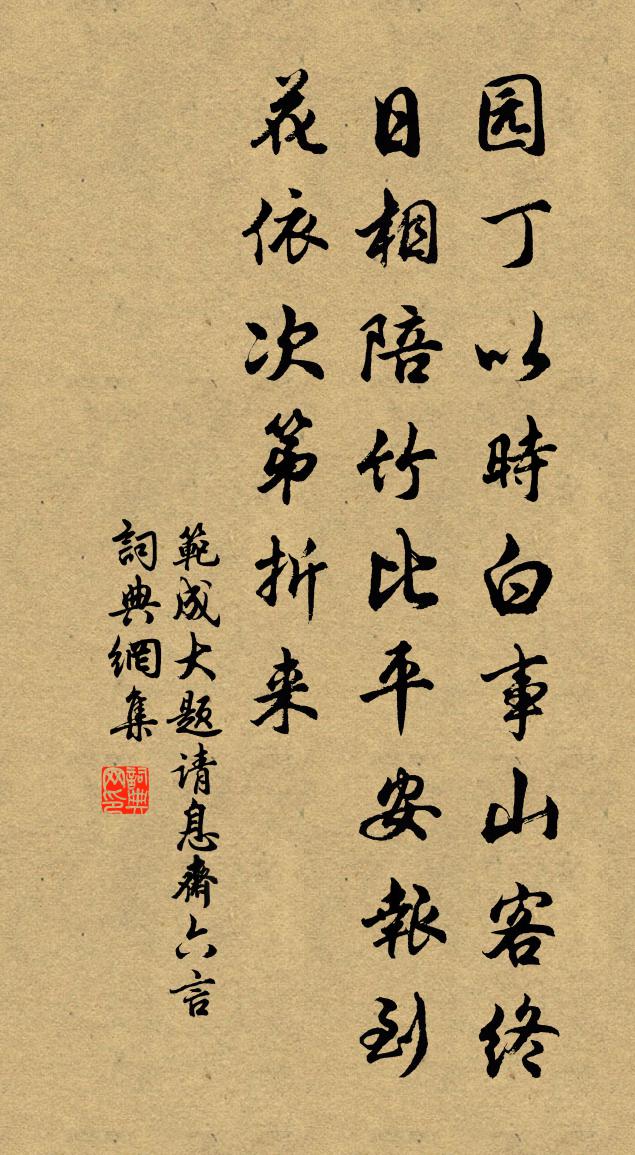 园丁以時白事山客终
日相陪竹比平安報到
花依次第折来
範成大题请息齋六言
詞典網集
詞典网印